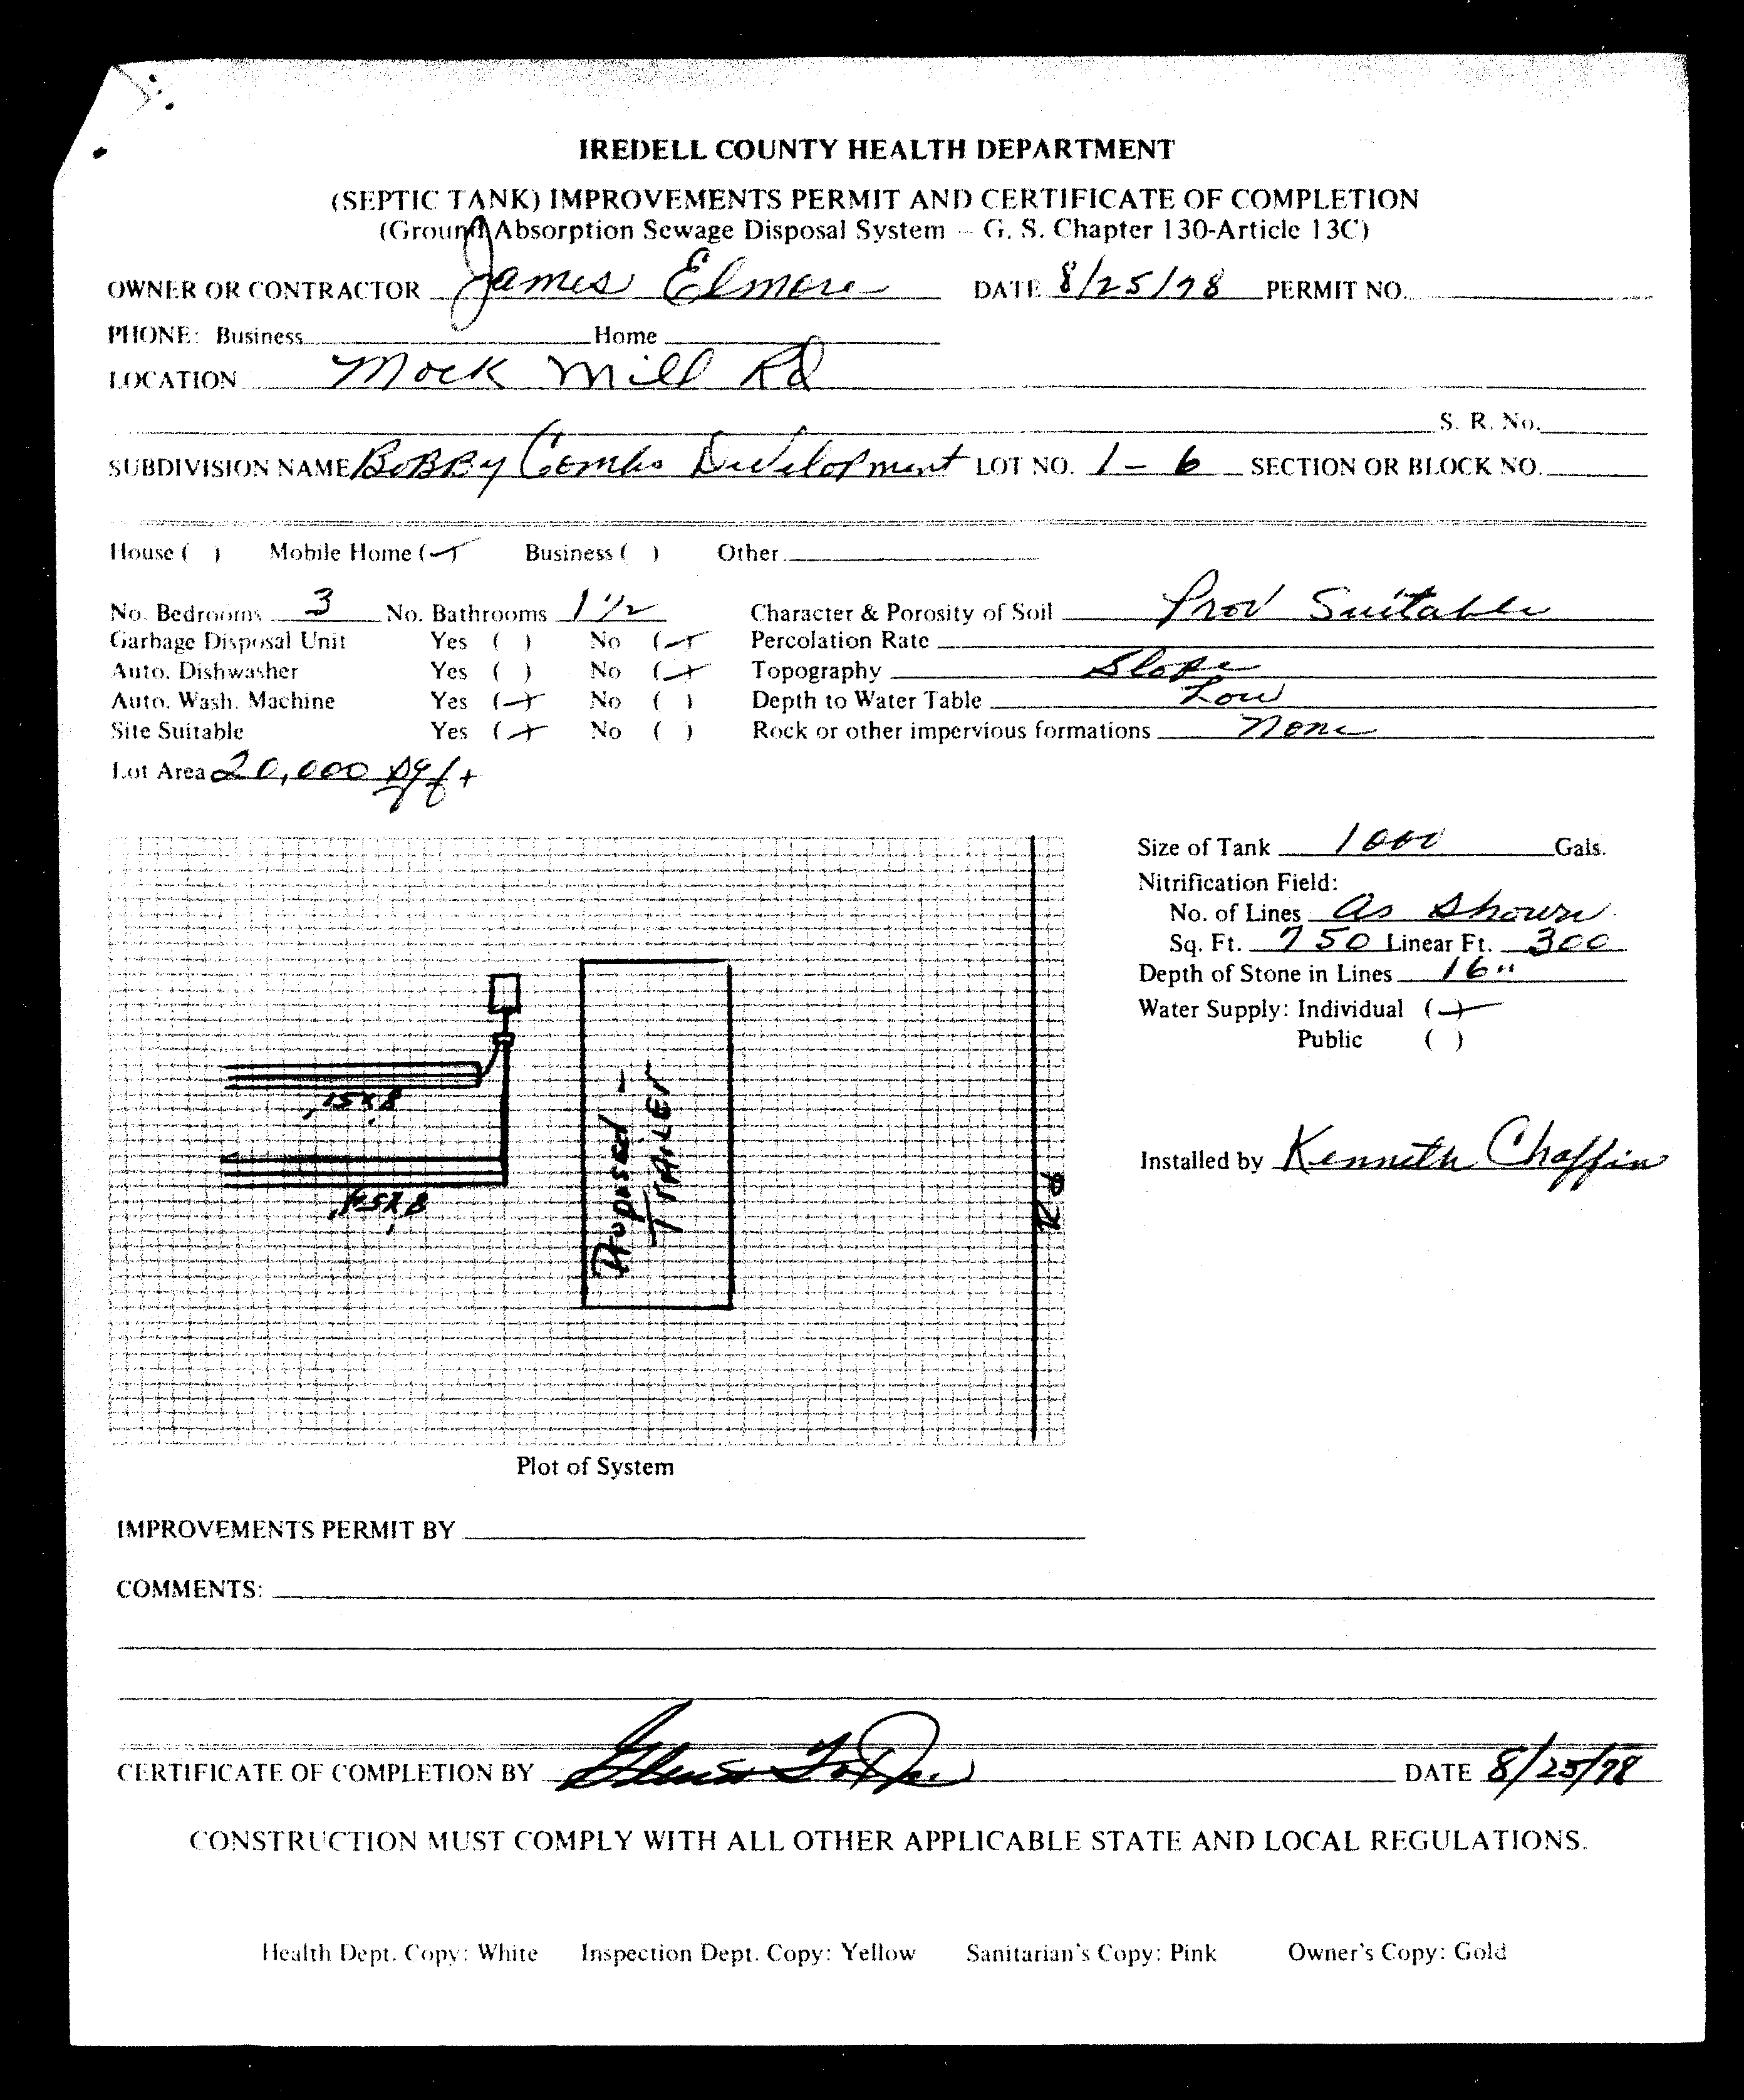 IREDELL COUNTY HEALTH DEPARTMENT
(SEPTIC TANK) IMPROVEMENTS PERMIT AND CERTIFICATE OF COMPLETION
(Ground Absorption Sewage Disposal System – G. S. Chapter 130-Article 13C)
OWNER OR CONTRACTOR James Elmore DATE 8/25/78 PERMIT NO.
PHONE: Business Home
LOCATION Mock Mill Rd
S. R. No.
SUBDIVISION NAME BOBBy Combs Development LOT NO. 1-6 SECTION OR BLOCK NO.
House ( ) Mobile Home (✓) Business ( ) Other
No. Bedrooms 3 No. Bathrooms 1 1/2 Character & Porosity of Soil Prov Suitable
Garbage Disposal Unit Yes ( ) No (✓) Percolation Rate
Auto. Dishwasher Yes ( ) No (✓) Topography Slope
Auto. Wash. Machine Yes (✓) No ( ) Depth to Water Table Low
Site Suitable Yes (✓) No ( ) Rock or other impervious formations None
Lot Area 20,000 sqft
Size of Tank 1000 Gals.
Nitrification Field:
No. of Lines as shown
Sq. Ft. 750 Linear Ft. 300
Depth of Stone in Lines 16"
Water Supply: Individual (✓)
Public ( )
Proposed -
TRAILER
Rd
Installed by Kenneth Chaffin
Plot of System
IMPROVEMENTS PERMIT BY
COMMENTS:
CERTIFICATE OF COMPLETION BY DATE 8/25/78
CONSTRUCTION MUST COMPLY WITH ALL OTHER APPLICABLE STATE AND LOCAL REGULATIONS.
Health Dept. Copy: White Inspection Dept. Copy: Yellow Sanitarian's Copy: Pink Owner's Copy: Gold